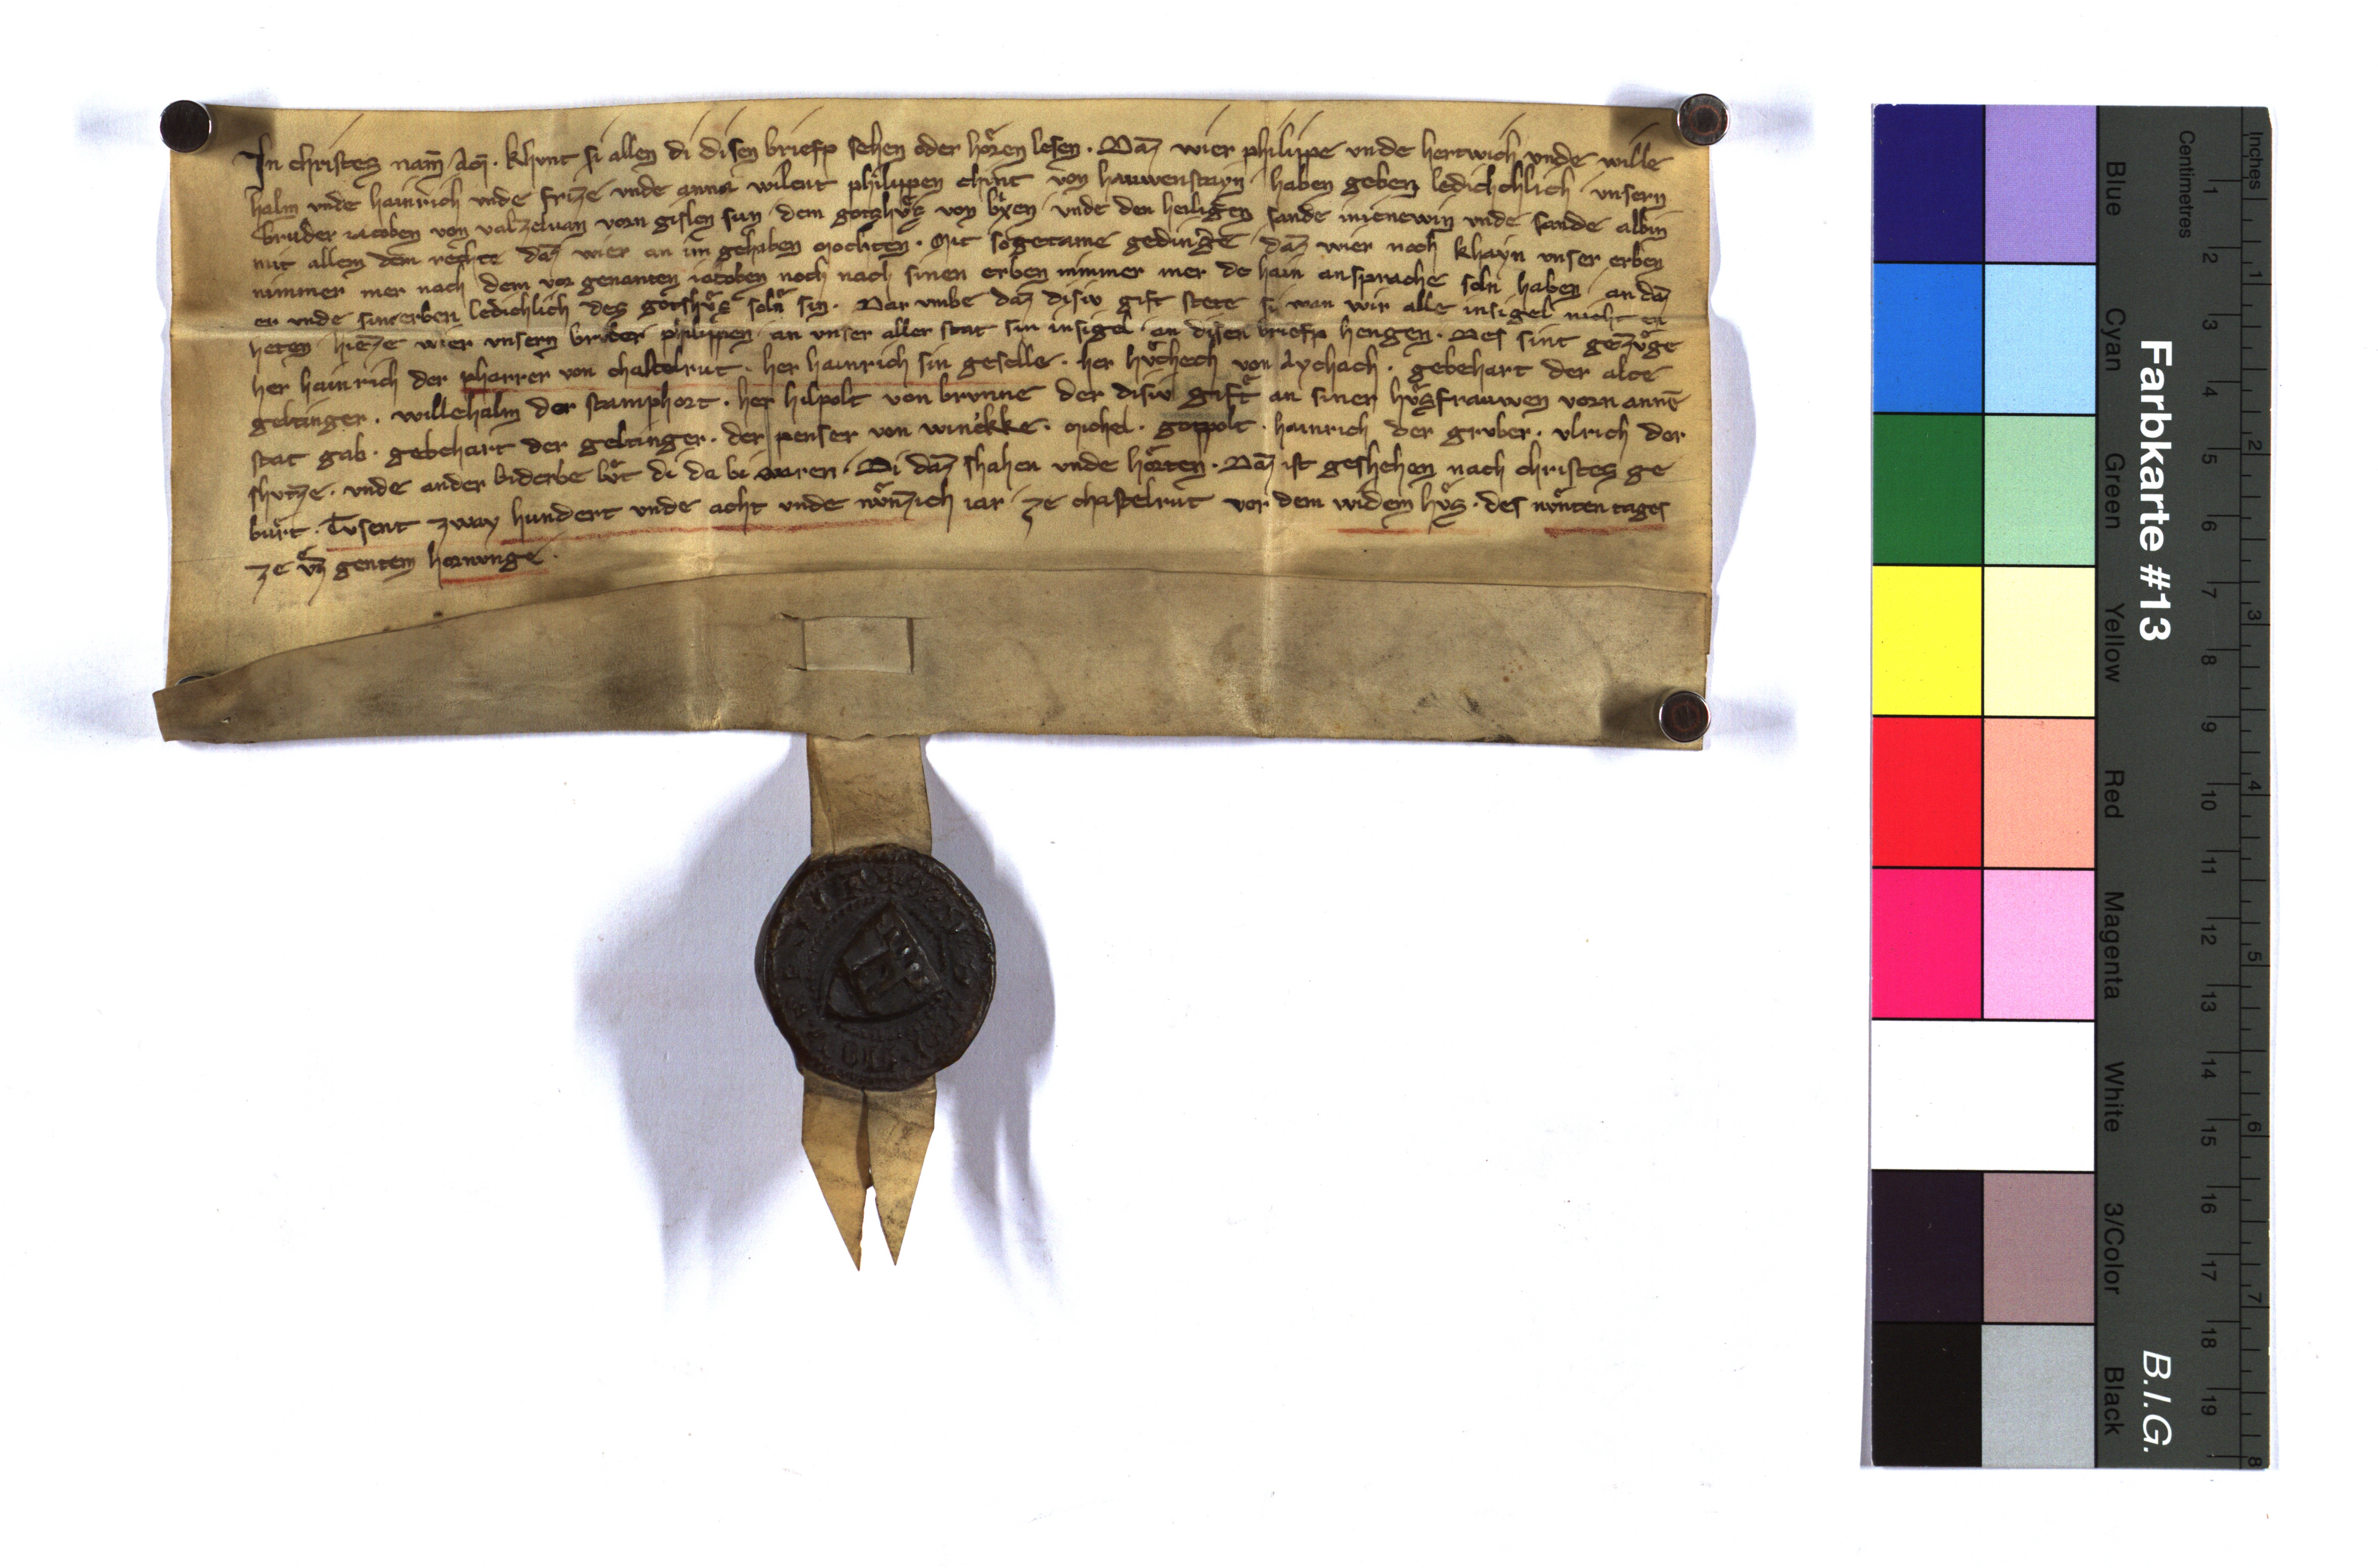 In christes nam̄ am̄. khvnt si allen di disen briefp sehen oder hoͤren lesen. Daz wier philippe vnde hertwich vnde wille
halm vnde hainrich vnde frize vnde anna wilent philippen chint von hauwenstayn haben geben ledichchlich vnsern
bruder iacoben von valzeluan vorn gislen sun dem gotzhvͦs von bͥxen vnde den heiligen sande inienewin vnde sande albin
mit allem dem rechte daz wier an im gehaben mochten. Mit sogetame gedinge daz wier noch khayn vnser erben
nimmer mer nach dem vor genanten iacoben noch nach sinen erben nimmer mer de hain ansprache soln haben an daz
er vnde sine erben ledichlich des gotshvͦs soln sin. Dar vmbe daz disiv gift stete si wan wir alle insigel nicht en
heten hieze wier vnsern brvder philippen an vnser aller stat sin insigel an disen briefp hengen. Des sint gezvͦge
her hainrich der pharrer von chastelrut. her hainrich sin geselle. her hvͦchech von aychach. gebehart der alte
geltinger. willehalm der stamphort. her hilpolt von brvnne der disiv gift an siner hvͦsfrauwen vorn annē
stat gab. gebehart der geltinger. der penser von winekke. michel. gotpolt. hainrich der grvber. vlrich der
shvtze. vnde ander biderbe lvͦt di da bi waren. Di daz shahen vnde hoͤrten. Daz ist geshehen nach christes ge
burt. Tvsent zway hundert vnde acht vnde nvͦnzich iar ze chastelrut vor dem widem hvͦs. des nvͦnten tages
ze vͦz gentem hornvnge.
Farbkarte #13
B.I.G.
Centimetres
Inches
Blue
Cyan
Green
Yellow
Red
Magenta
White
3/Color
Black
1
2
3
4
5
6
7
8
9
10
11
12
13
14
15
16
17
18
19
1
2
3
4
5
6
7
8